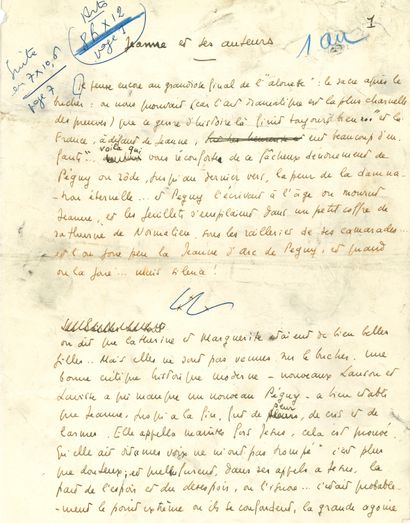 Arts
86 x 12
page 1
Suite
en 7 x 10,05
page 7
1 au
1
Jeanne et ses auteurs
Je pense encore au grandiose final de l'"alouette" : le sacre après le
bûcher : on nous prouvait (car l'art dramatique est la plus charnelle
des preuves) que ce genre d'histoire là finit toujours bien... et la
France, à défaut de Jeanne, eut beaucoup d'en-
fants" voilà qui vous réconforte de ce fâcheux dénouement de
Péguy où rôde, jusqu'au dernier vers, la peur de la damna-
tion éternelle... et Péguy l'écrivait à l'âge où mourut
Jeanne, et les feuillets s'empilaient dans un petit coffre de
de Normalien, sous les railleries de ses camarades...
et l'on fera peu la Jeanne d'Arc de Péguy, et quand
on la fera... mais silence !
on dit que Catherine et Marguerite étaient de bien belles
filles... Mais elles ne sont pas venues sur le bûcher. Une
bonne critique historique moderne - nouveaux Lanson et
Lavisse à qui manque un nouveau Péguy - a bien établi
que Jeanne, jusqu'à la fin, fut de peur, de cris et de
larmes. Elle appela maintes fois Jésus, cela est prouvé.
Qu'elle ait dit "mes voix ne m'ont pas trompé" c'est plus
que douteux ; et quelle furent, dans ses appels à Jésus, la
part de l'espoir et du désespoir, on l'ignore... c'était probable-
ment le point extrême où ils se confondent, la grande agonie